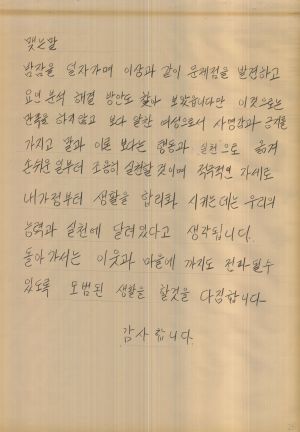 맺는말
밤잠을 설쳐가며 이상과 같이 문제점을 발견하고
요인 분석 해결 방안도 찾아 보았읍니다만 이것으로는
만족을 하지않고 보다 알찬 여성으로서 사명감과 긍지를
가지고 말과 이론 보다는 행동과 실천으로 옮겨
손쉬운 일부터 조용히 실천할 것이며 적극적인 자세로
내가정부터 생활을 합리화 시키는데는 우리의
능력과 실천에 달려있다고 생각됩니다.
돌아가서는 이웃과 마을에 까지도 전파될수
있도록 모범된 생활을 할것을 다짐합니다
감사합니다.